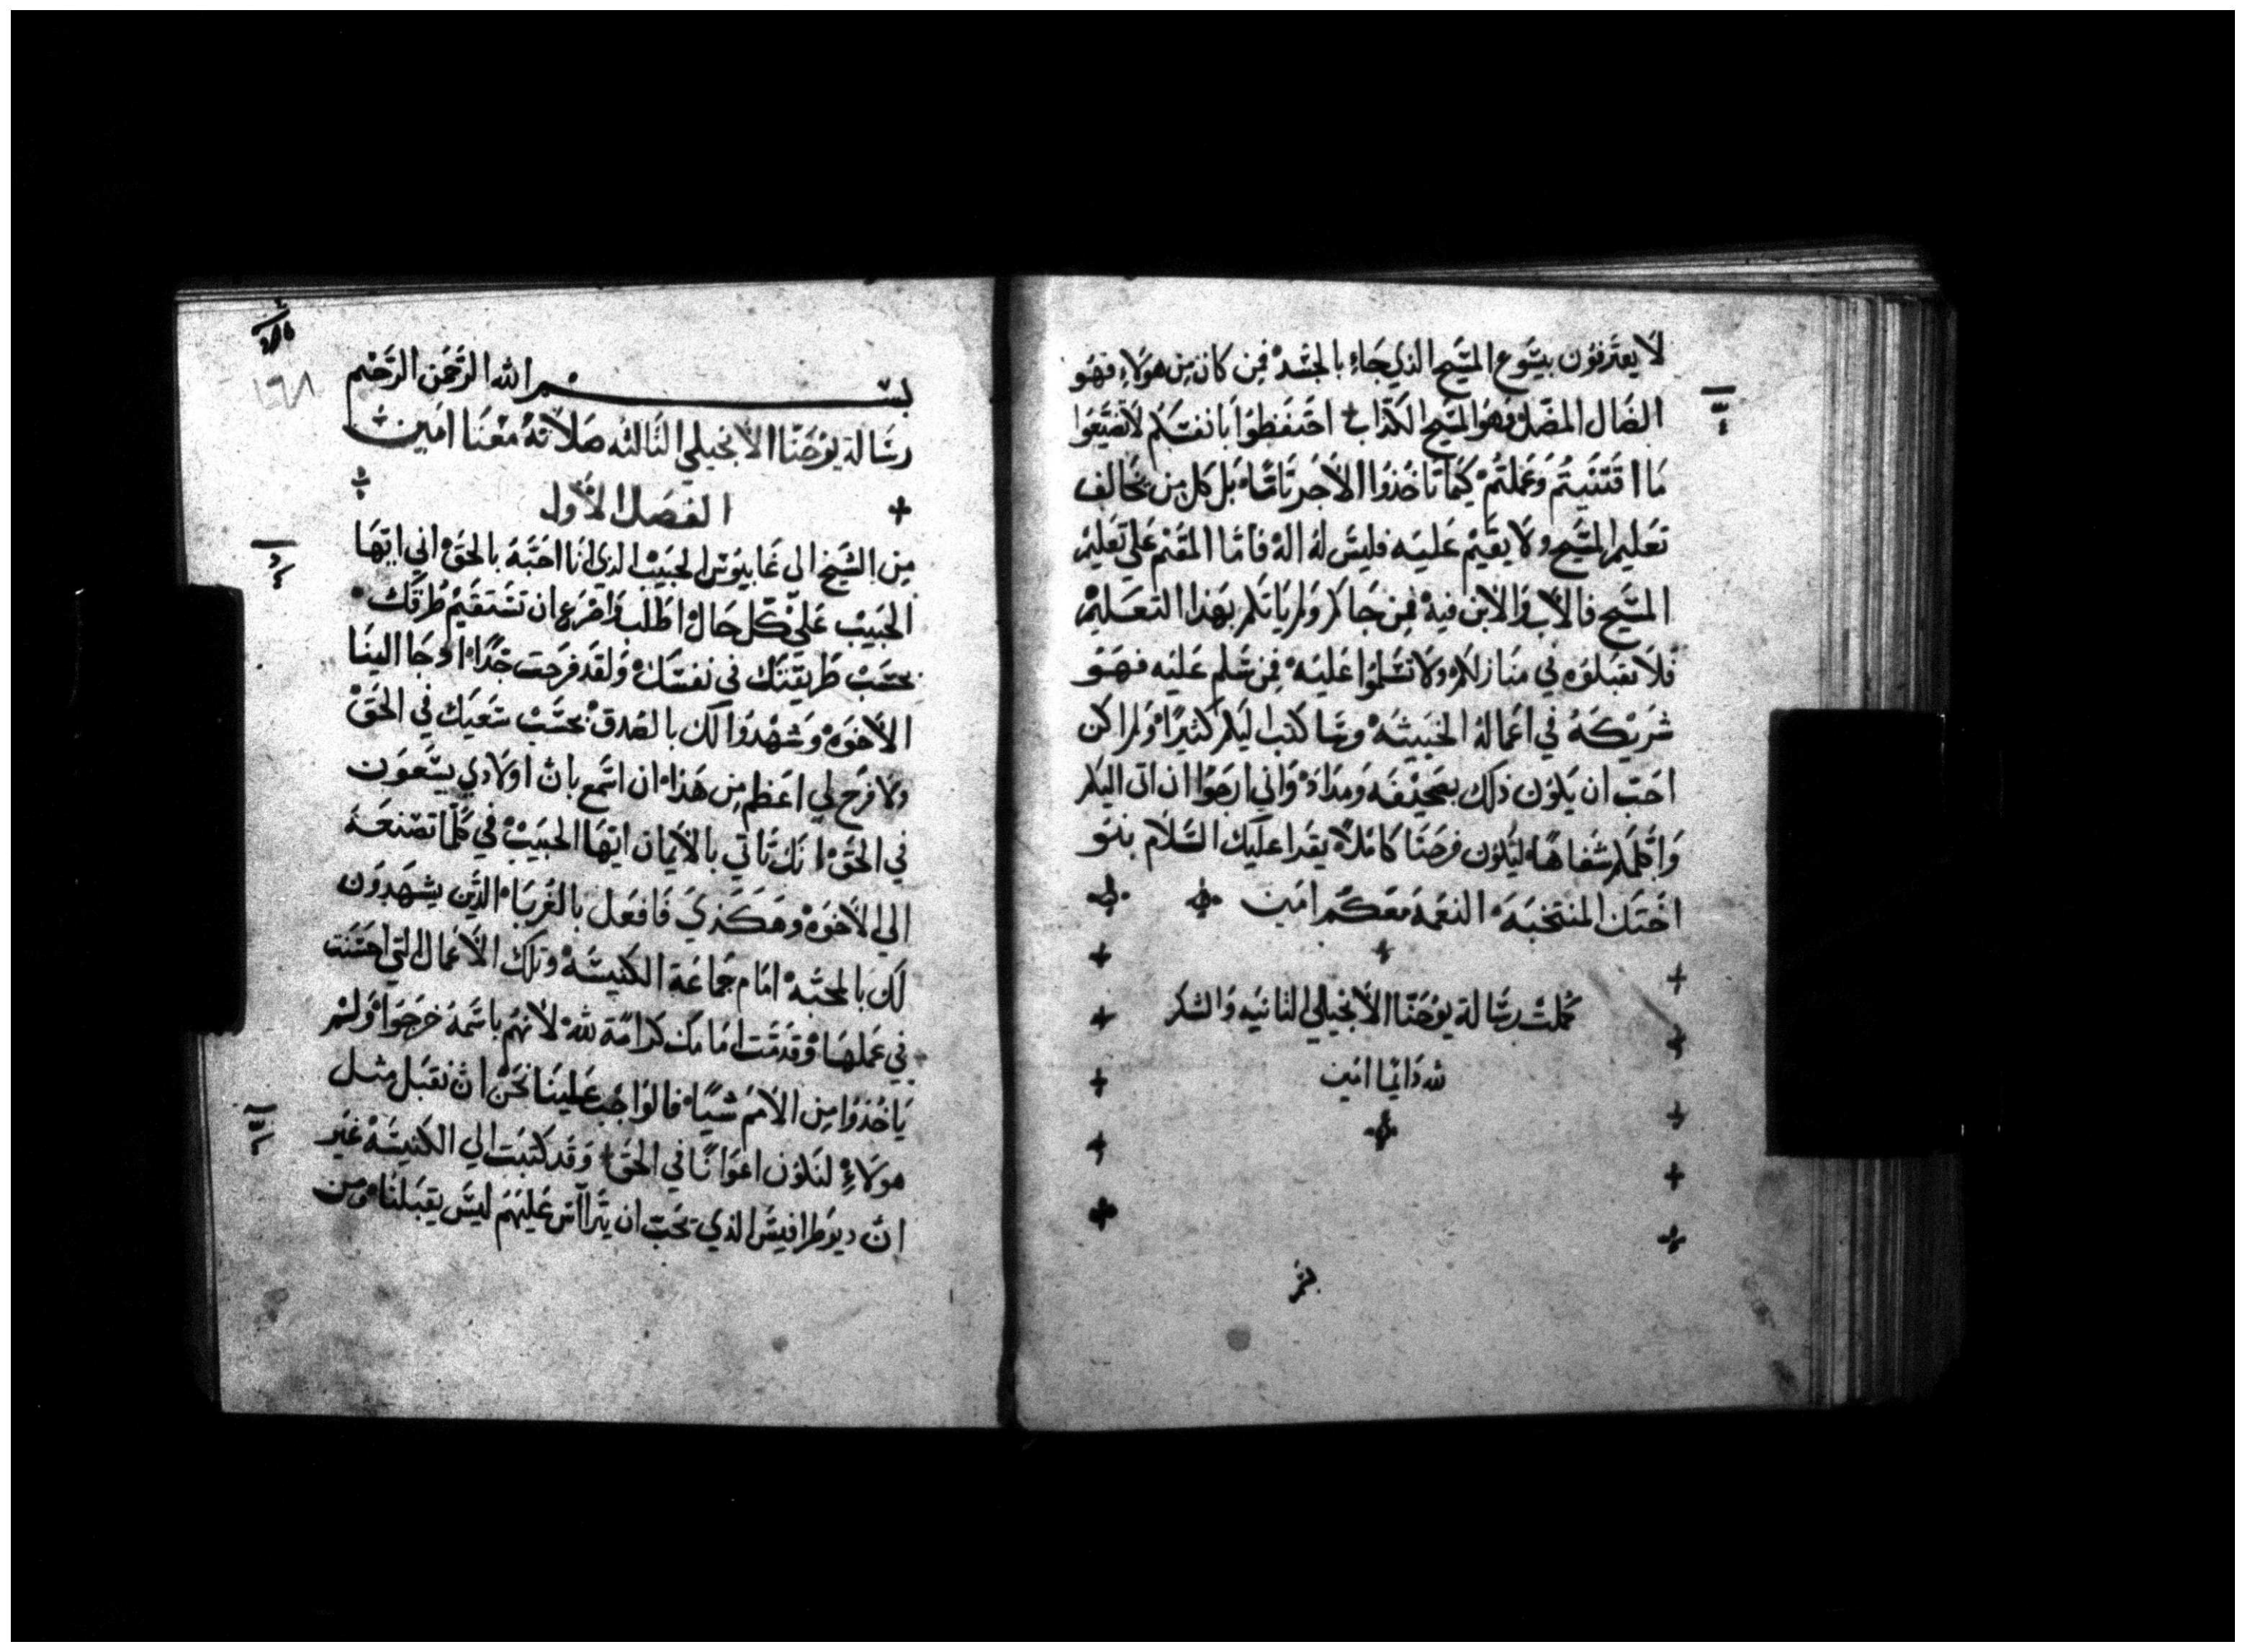 لا يعترفون بيسوع المسيح الذي جاء بالجسد فمن كان من هولاء فهو
الضال المضل وهو المسيح الكذاب احتفظوا بانفسكم لا تضيعوا
ما اقتنيتم وعملتم كيما تاخذوا الاجر تاما بل كل من يخالف
تعليم المسيح ولا يقيم عليه فليس له اله فاما المقيم علي تعليم
المسيح فالاب والابن فيه فمن جاكم ولم ياتكم بهذا التعليم
فلا تقبلوه في منازلكم ولا تسلموا عليه فمن سلم عليه فهو
شريكه في اعماله الخبيثه كتب اليكم كثيرا ولم اكن
احب ان يكون ذلك بصحيفه ومداد واني ارجوا ان اتي اليكم
واكلمكم شفاها ليكون فرحنا كاملا يقرا عليك السلام بنو
اختك المنتخبه النعمة معكم امين
كملت رسالة يوحنا الانجيلي الثانيه والشكر
لله دايما امين
بسم الله الرحمن الرحيم
رسالة يوحنا الانجيلي الثالثه صلاته معنا امين
الفصل الاول
من الشيخ الى غاييوس الحبيب الذي انا احبه بالحق اني ايها
الحبيب علي كل حال اطلب واضرع ان تستقيم طرقك
بحسب طريقتك في نفسك ولقد فرحت جدا اذ جا الينا
الاخوه وشهدوا لك بالصدق بحسب سعيك في الحق
ولا فرح لي اعظم من هذا ان اسمع بان اولادي يسعون
في الحق انك تاتي بالايمان ايها الحبيب في كلما تصنعه
الي الاخوه وهكذي فافعل بالغربا الذين يشهدون
لك بالمحبه امام جماعة الكنيسه وتلك الاعمال التي احسنت
في عملها وقدمت امامك كرامة لله لانهم باسمه خرجوا ولم
ياخذوا من الامم شيا فالواجب علينا نحن ان نقبل مثل
هولاء لنكون اعوانا في الحق وقد كتبت الي الكنيسه غير
ان ديوطرافيس الذي يحب ان يتراس عليهم ليس يقبلنا ومن